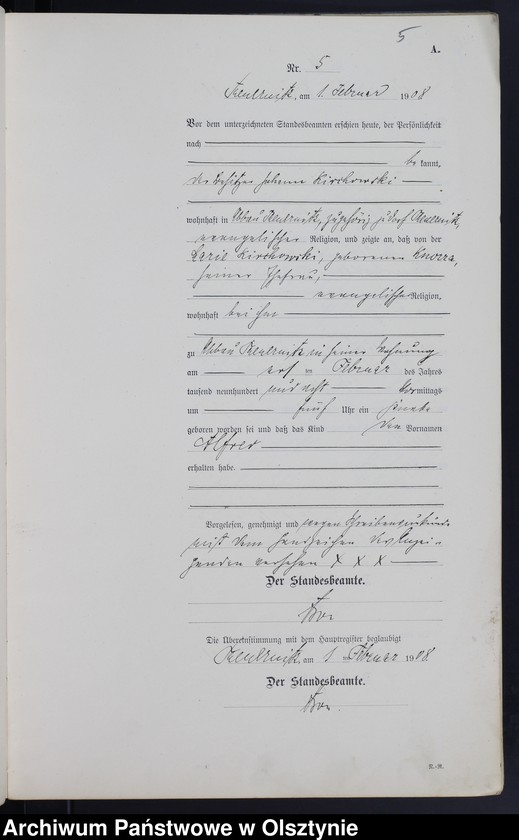 5
A.
Nr. 5
am 1. Februar 1908
Vor dem unterzeichneten Standesbeamten erschien heute, der Persönlichkeit
nach
be kannt,
der Besitzer Johann Kirchowski
wohnhaft in Abbau
evangelischer Religion, und zeigte an, daß von der
Kirchowski, geborenen
seiner Ehefrau,
evangelischer Religion,
wohnhaft bei ihm
zu Abbau in seiner Wohnung
am ersten Februar des Jahres
tausend neunhundert und acht Vor mittags
um fünf Uhr ein Knabe
geboren worden sei und daß das Kind den Vornamen
Alfred
erhalten habe.
Vorgelesen, genehmigt und wegen
mit dem Handzeichen des Anzei-
genden versehen X X X
Der Standesbeamte.
Die Übereinstimmung mit dem Hauptregister beglaubigt
am 1 Februar 1908
Der Standesbeamte.
Archiwum Państwowe w Olsztynie